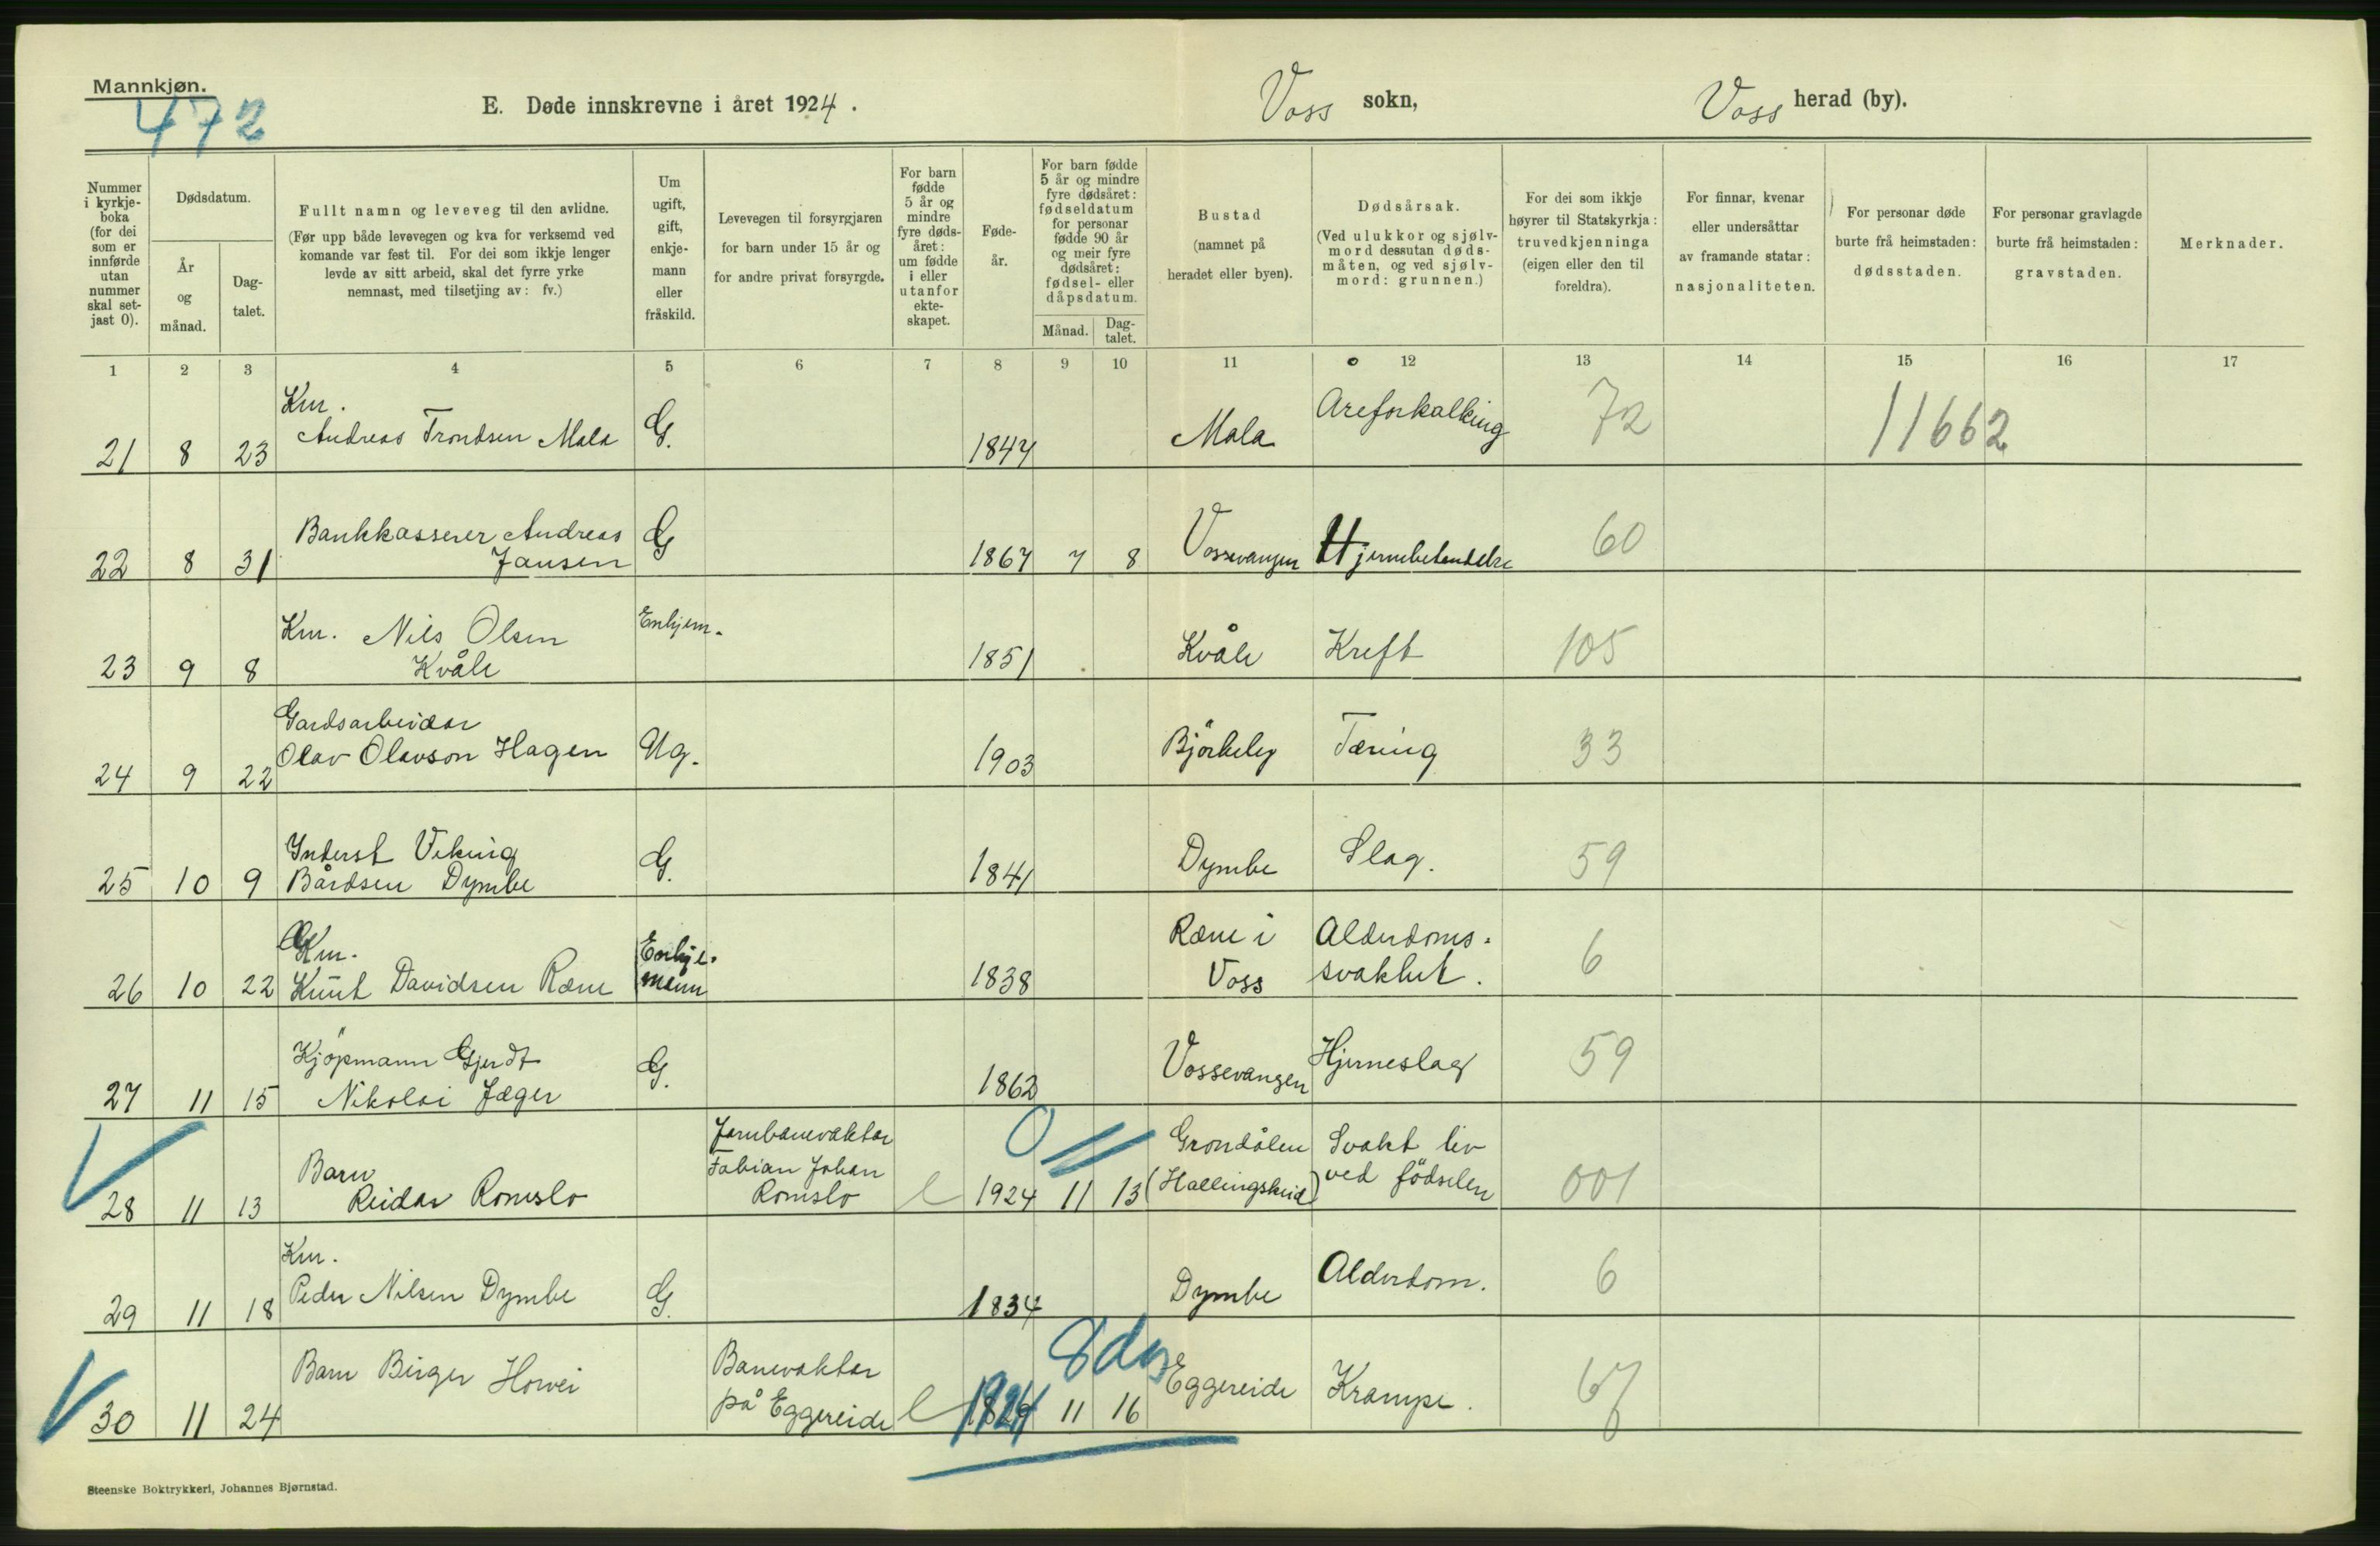 Mannkjøn.
472
E. Døde innskrevne i året 1924.
Voss sokn,
Voss herad (by).
Nummer i kyrkje-boka (for dei som er innførde utan nummer skal set-jast 0).
Dødsdatum.
År og månad.
Dag-talet.
Fullt namn og leveveg til den avlidne.
(Før upp både levevegen og kva for verksemd ved komande var fest til. For dei som ikkje lenger levde av sitt arbeid, skal det fyrre yrke nemnast, med tilsetjing av: fv.)
Um ugift, gift, enkje-mann eller fråskild.
Levevegen til forsyrgjaren for barn under 15 år og for andre privat forsyrgde.
For barn fødde 5 år og mindre fyre døds-året: um fødde i eller utanfor ekte-skapet.
Føde-år.
For barn fødde 5 år og mindre fyre dødsåret: fødseldatum for personar fødde 90 år og meir fyre dødsåret: fødsel- eller dåpsdatum.
Månad.
Dag-talet.
Bustad (namnet på heradet eller byen).
Dødsårsak.
(Ved ulukkor og sjølv-mord dessutan døds-måten, og ved sjølv-mord: grunnen.)
For dei som ikkje høyrer til Statskyrkja: truvedkjenninga (eigen eller den til foreldra).
For finnar, kvenar eller undersåttar av framande statar: nasjonaliteten.
For personar døde burte frå heimstaden: dødsstaden.
For personar gravlagde burte frå heimstaden: gravstaden.
Merknader.
1 2 3 4 5 6 7 8 9 10 11 12 13 14 15 16 17
Km.
21 8 23 Andreas Trondsen Mala G. 1847 Mala Areforkalking 72 11662
22 8 31 Bankkasserer Andreas Jansen G 1867 7 8 Vossevangen Hjernebetendelse 60
23 9 8 Km. Nils Olsen Kvåle Enkjem. 1851 Kvåle Kreft 105
Gardsarbeidar
24 9 22 Olav Olavson Hagen Ug. 1903 Björkely Tæring 33
25 10 9 Inderst Viking Bårdsen Dymbe G. 1841 Dymbe Slag. 59
Km.
26 10 22 Knut Davidsen Rene Enkje-mann 1838 Rene i Voss Alderdoms-svakhet. 6
27 11 15 Kjöpmann Gjerdt Nikolai Jæger G. 1862 Vossevangen Hjerneslag 59
28 11 13 Barn Reidar Romslo Jarnbanevaktar Fabian Johan Romslo 1924 11 13 Grondålen (Hallingskeid) Svakt liv ved födselen 001
Km.
29 11 18 Peder Nilsen Dymbe G. 1834 Dymbe Alderdom. 6
8 dg
30 11 24 Barn Birger Horvei Banevaktar på Eggereide 1924 11 16 Eggereide Krampe. 67
Steenske Boktrykkeri, Johannes Bjørnstad.